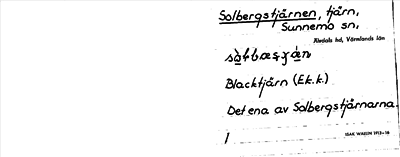 Solbergstjärnen, tjärn,
Sunnemo sn,
Älvdals hd, Värmlands län
Blacktjärn (Ek.k.)
Det ena av Solbergstjärnarna.
1
ISAK WALLIN 1913-16